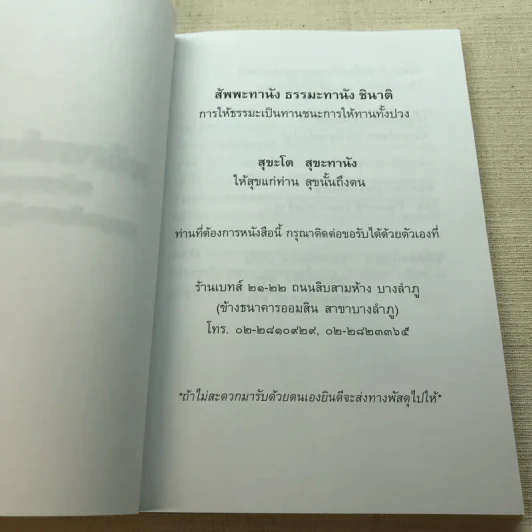 สัพพะทานัง ธรรมะทานัง ชินาติ
การให้ธรรมะเป็นทานชนะการให้ทานทั้งปวง
สุขะโต สุขะทานัง
ให้สุขแก่ท่าน สุขนั้นถึงตน
ท่านที่ต้องการหนังสือนี้ กรุณาติดต่อขอรับได้ด้วยตัวเองที่
ร้านเบทส์ ๒๑-๒๒ ถนนสิบสามห้าง บางลำภู
(ข้างธนาคารออมสิน สาขาบางลำภู)
โทร. ๐๒-๒๘๑๐๙๒๙, ๐๒-๒๘๒๓๓๖๕
*ถ้าไม่สะดวกมารับด้วยตนเองยินดีจะส่งทางพัสดุไปให้*